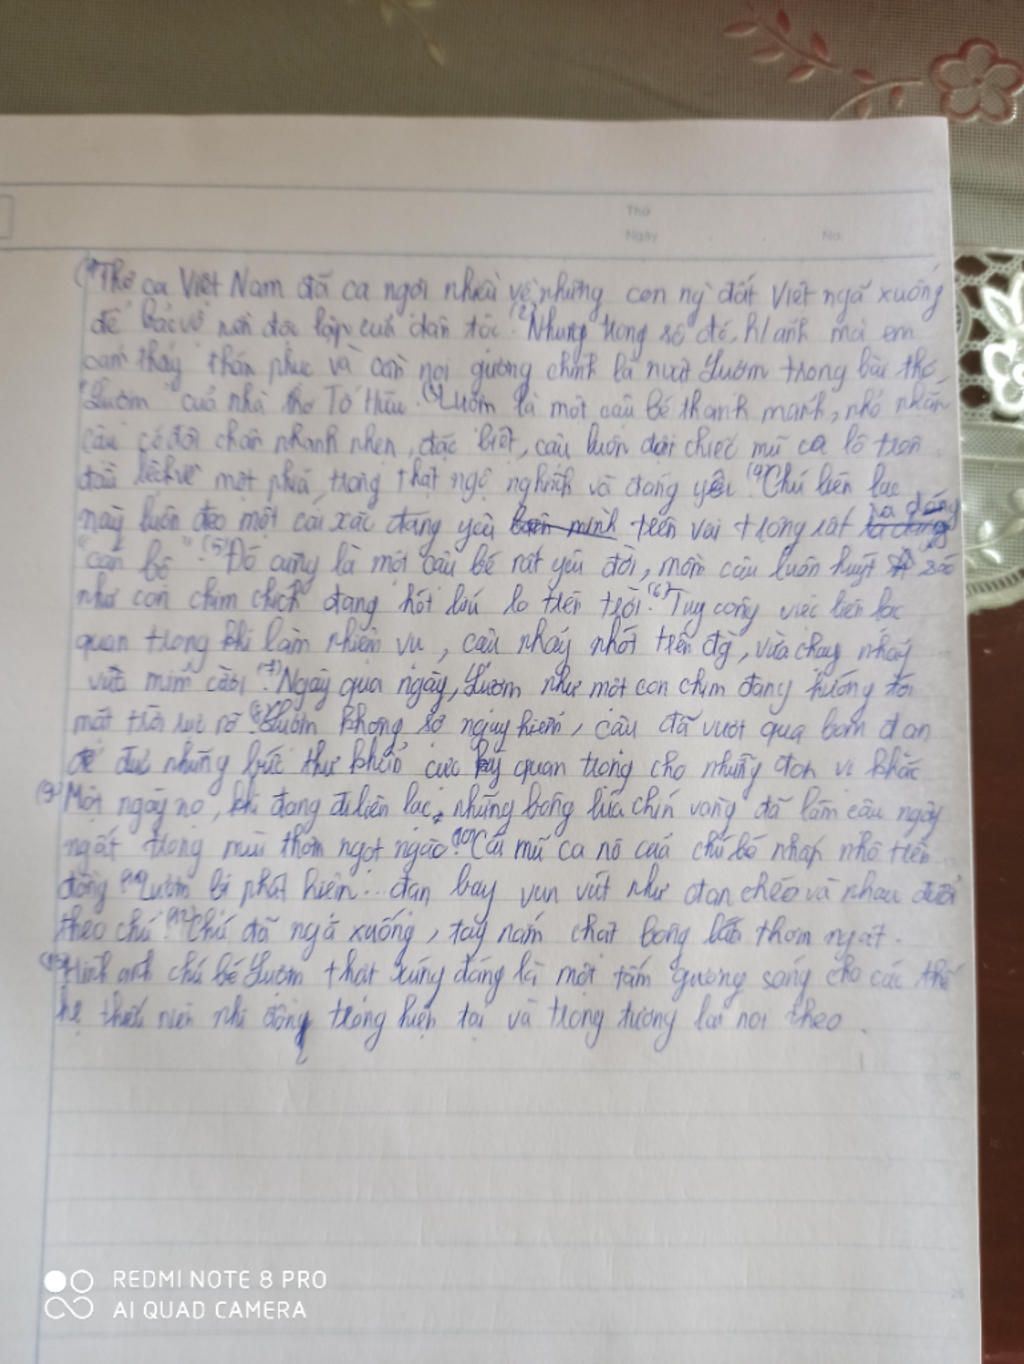 Thứ
Ngày No.
(1) Thơ ca Việt Nam đã ca ngợi nhiều về những con ng` đất Việt ngã xuống
để bảo vệ nền độc lập của dân tộc. (2) Nhưng trong số đó, h/ảnh mà em
cảm thấy thán phục và cần noi gương chính là Lượm trong bài thơ
"Lượm" của nhà thơ Tố Hữu. (3) Lượm là một cậu bé thanh mảnh, nhỏ nhắn
cậu có đôi chân nhanh nhẹn, đặc biệt, cậu luôn đội chiếc mũ ca lô trên
đầu lệch về một phía, trông thật ngộ nghĩnh và đáng yêu. (4) Chú liên lạc
này luôn đeo một cái xắc đáng yêu trên vai trông rất ra dáng
"cán bộ". (5) Đó cũng là một cậu bé rất yêu đời, mồm cậu luôn huýt sáo
như con chim chích đang hót líu lo trên trời. (6) Tuy công việc liên lạc
quan trọng khi làm nhiệm vụ, cậu nhảy nhót trên đg`, vừa chạy nhảy
vừa mỉm cười. (7) Ngày qua ngày, Lượm như một con chim đang hướng tới
mặt trời rực rỡ. (8) Lượm không sợ nguy hiểm, cậu đã vượt qua bom đạn
để đưa những bức thư khẩn cực kỳ quan trọng cho những đơn vị khác
(9) Một ngày nọ, khi đang đi liên lạc, những bông lúa chín vàng đã làm cậu ngây
ngất trong mùi thơm ngọt ngào. (10) Cái mũ ca nô của chú bé nhấp nhô trên
đồng. (11) Lượm bị phát hiện... đạn bay vun vút như đan chéo và nhau đuổi
theo chú. (12) Chú đã ngã xuống, tay nắm chặt bông lúa thơm ngát.
(13) Hình ảnh chú bé Lượm thật xứng đáng là một tấm gương sáng cho các thế
hệ thiếu niên nhi đồng trong hiện tại và trong tương lai noi theo.
REDMI NOTE 8 PRO
AI QUAD CAMERA